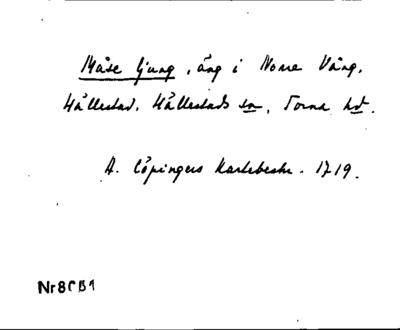 Måse ljung, äng i Norre Vång.
Hållestad, Hållestads sn, Torna hd.
A. Cöpingers Kartebeskr. 1719.